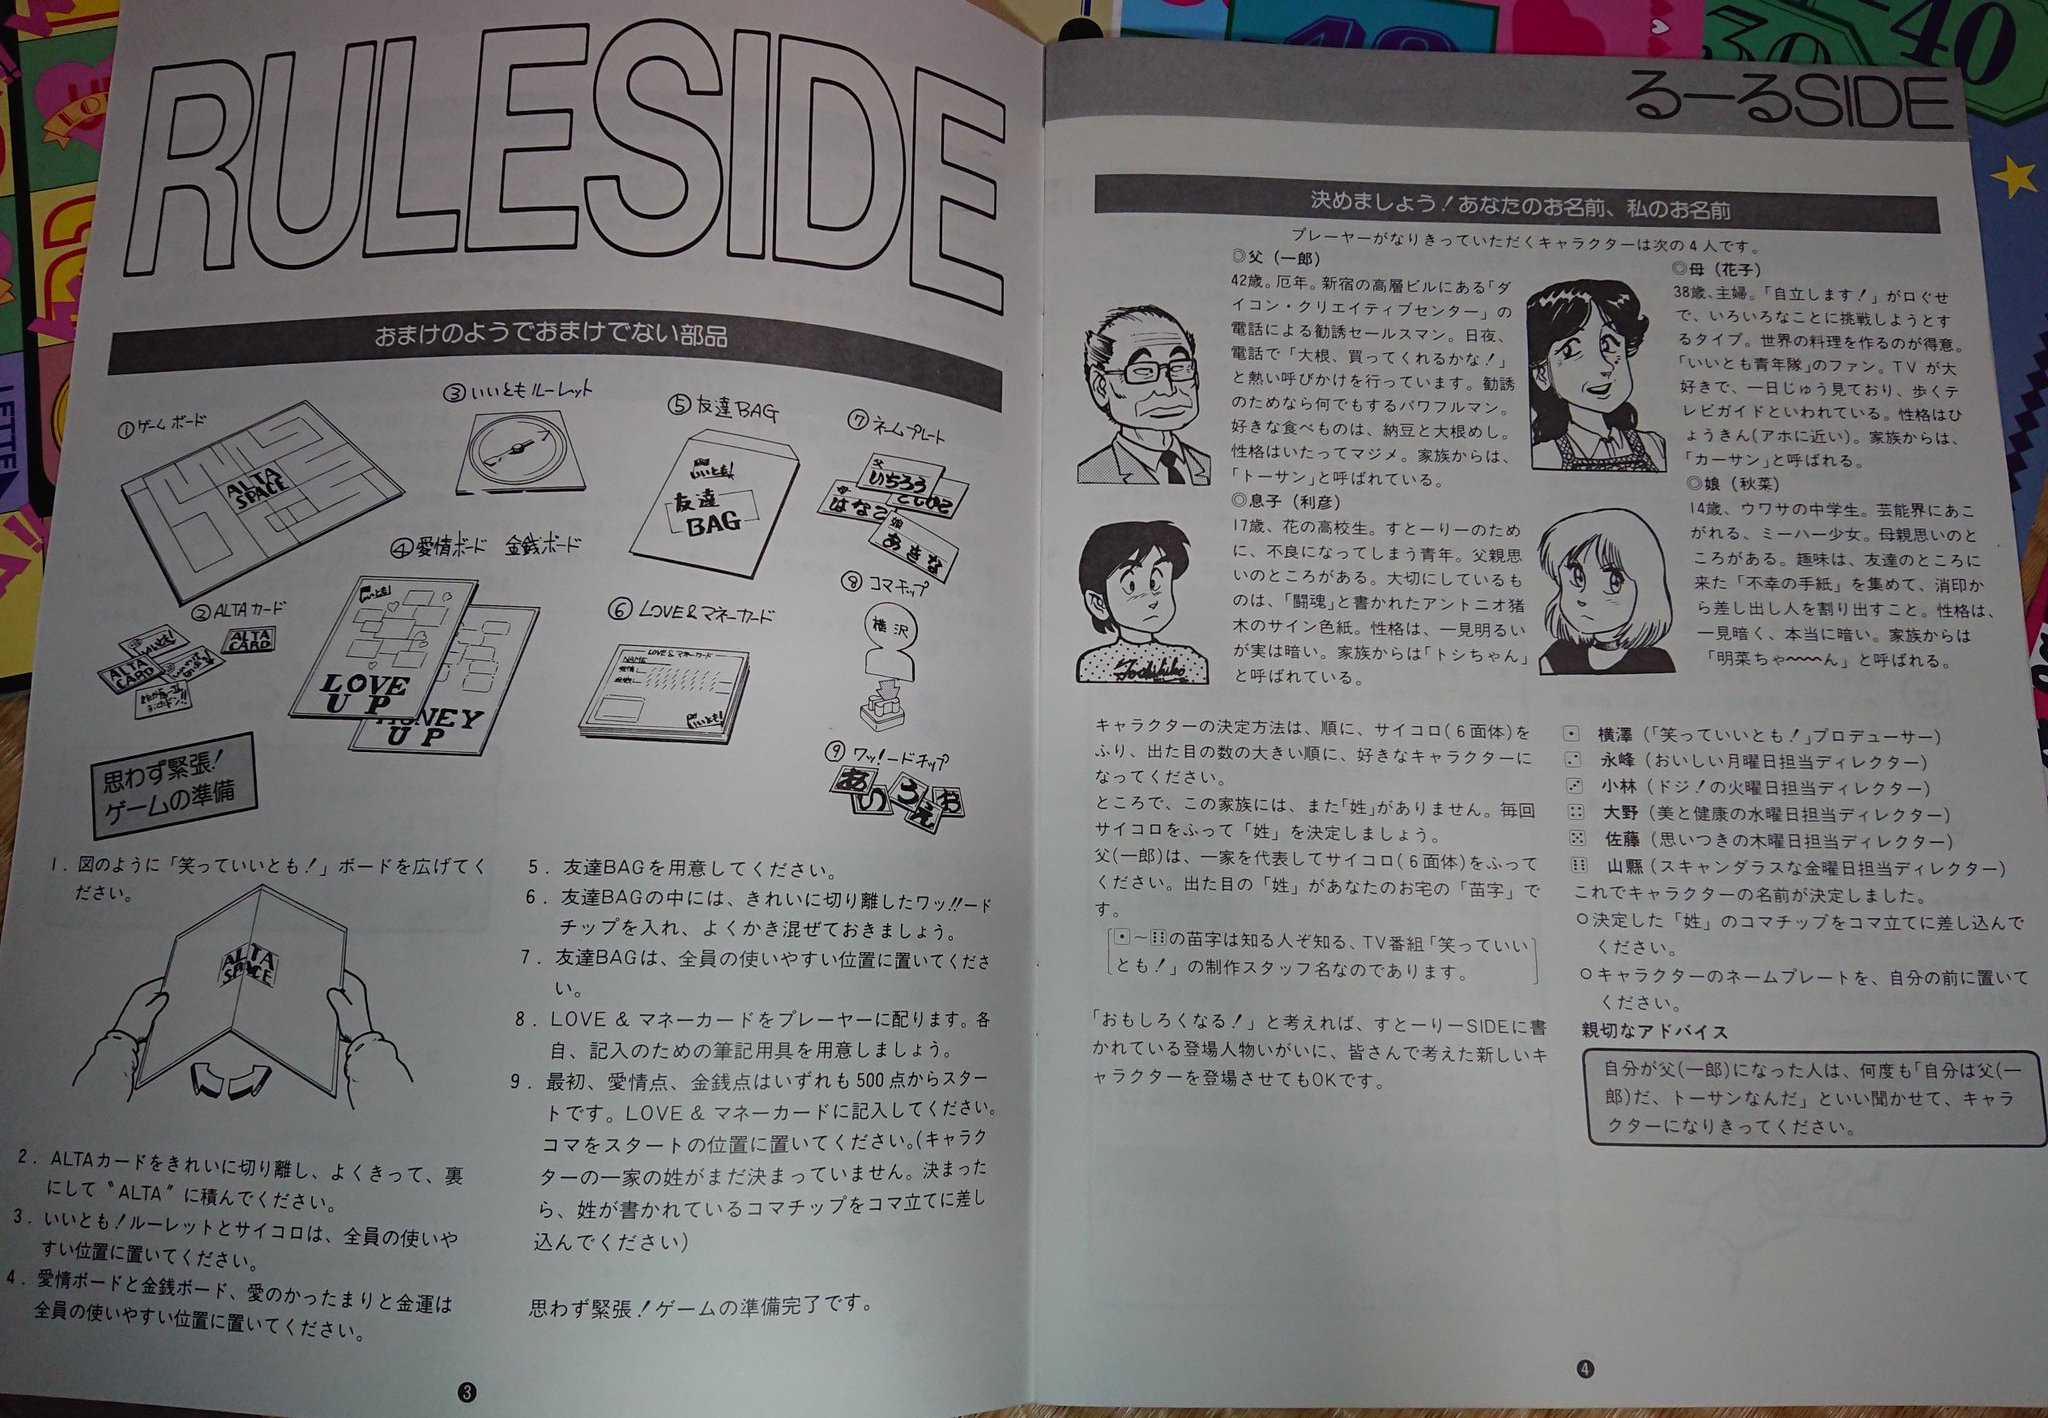 RULESIDE
おまけのようでおまけでない部品
①ゲームボード
ALTA
SPACE
③いいともルーレット
⑤友達BAG
いいとも!
友達
BAG
⑦ネームプレート
父
いちろう
母
はなこ
としひこ
娘
あきな
④愛情ボード 金銭ボード
いいとも!
LOVE
UP
MONEY
UP
②ALTAカード
ALTA
CARD
ALTA
CARD
⑥LOVE&マネーカード
LOVE&マネーカード
NAME
いいとも!
⑧コマチップ
横沢
⑨ワッ!ードチップ
あ
い
う
え
お
思わず緊張!
ゲームの準備
1. 図のように「笑っていいとも!」ボードを広げてく
ださい。
ALTA
SPACE
2. ALTAカードをきれいに切り離し、よくきって、裏
にして〝ALTA〟に積んでください。
3. いいとも!ルーレットとサイコロは、全員の使いや
すい位置に置いてください。
4. 愛情ボードと金銭ボード、愛のかったまりと金運は
全員の使いやすい位置に置いてください。
5. 友達BAGを用意してください。
6. 友達BAGの中には、きれいに切り離したワッ!!ード
チップを入れ、よくかき混ぜておきましょう。
7. 友達BAGは、全員の使いやすい位置に置いてくださ
い。
8. LOVE & マネーカードをプレーヤーに配ります。各
自、記入のための筆記用具を用意しましょう。
9. 最初、愛情点、金銭点はいずれも500点からスター
トです。LOVE & マネーカードに記入してください。
コマをスタートの位置に置いてください。(キャラク
ターの一家の姓がまだ決まっていません。決まった
ら、姓が書かれているコマチップをコマ立てに差し
込んでください)
思わず緊張!ゲームの準備完了です。
3
るールSIDE
決めましょう!あなたのお名前、私のお名前
プレーヤーがなりきっていただくキャラクターは次の4人です。
◎父(一郎)
42歳。厄年。新宿の高層ビルにある「ダ
イコン・クリエイティブセンター」の
電話による勧誘セールスマン。日夜、
電話で「大根、買ってくれるかな!」
と熱い呼びかけを行っています。勧誘
のためなら何でもするパワフルマン。
好きな食べものは、納豆と大根めし。
性格はいたってマジメ。家族からは、
「トーサン」と呼ばれている。
◎息子(利彦)
17歳、花の高校生。すとーりーのため
に、不良になってしまう青年。父親思
いのところがある。大切にしているも
のは、「闘魂」と書かれたアントニオ猪
木のサイン色紙。性格は、一見明るい
が実は暗い。家族からは「トシちゃん」
と呼ばれている。
Toshihiko
◎母(花子)
38歳、主婦。「自立します!」が口ぐせ
で、いろいろなことに挑戦しようとす
るタイプ。世界の料理を作るのが得意。
「いいとも青年隊」のファン。TVが大
好きで、一日じゅう見ており、歩くテ
レビガイドといわれている。性格はひ
ょうきん(アホに近い)。家族からは、
「カーサン」と呼ばれる。
◎娘(秋菜)
14歳、ウワサの中学生。芸能界にあこ
がれる、ミーハー少女。母親思いのと
ころがある。趣味は、友達のところに
来た「不幸の手紙」を集めて、消印か
ら差し出し人を割り出すこと。性格は、
一見暗く、本当に暗い。家族からは
「明菜ちゃ〜〜〜ん」と呼ばれる。
キャラクターの決定方法は、順に、サイコロ(6面体)を
ふり、出た目の数の大きい順に、好きなキャラクターに
なってください。
ところで、この家族には、また「姓」がありません。毎回
サイコロをふって「姓」を決定しましょう。
父(一郎)は、一家を代表してサイコロ(6面体)をふって
ください。出た目の「姓」があなたのお宅の「苗字」で
す。
⚀〜⚅の苗字は知る人ぞ知る、TV番組「笑っていい
とも!」の制作スタッフ名なのであります。
「おもしろくなる!」と考えれば、すとーりーSIDEに書
かれている登場人物いがいに、皆さんで考えた新しいキ
ャラクターを登場させてもOKです。
⚀ 横澤(「笑っていいとも!」プロデューサー)
⚁ 永峰(おいしい月曜日担当ディレクター)
⚂ 小林(ドジ!の火曜日担当ディレクター)
⚃ 大野(美と健康の水曜日担当ディレクター)
⚄ 佐藤(思いつきの木曜日担当ディレクター)
⚅ 山縣(スキャンダラスな金曜日担当ディレクター)
これでキャラクターの名前が決定しました。
○決定した「姓」のコマチップをコマ立てに差し込んで
ください。
○キャラクターのネームプレートを、自分の前に置いて
ください。
親切なアドバイス
自分が父(一郎)になった人は、何度も「自分は父(一
郎)だ、トーサンなんだ」といい聞かせて、キャラ
クターになりきってください。
4
30
40